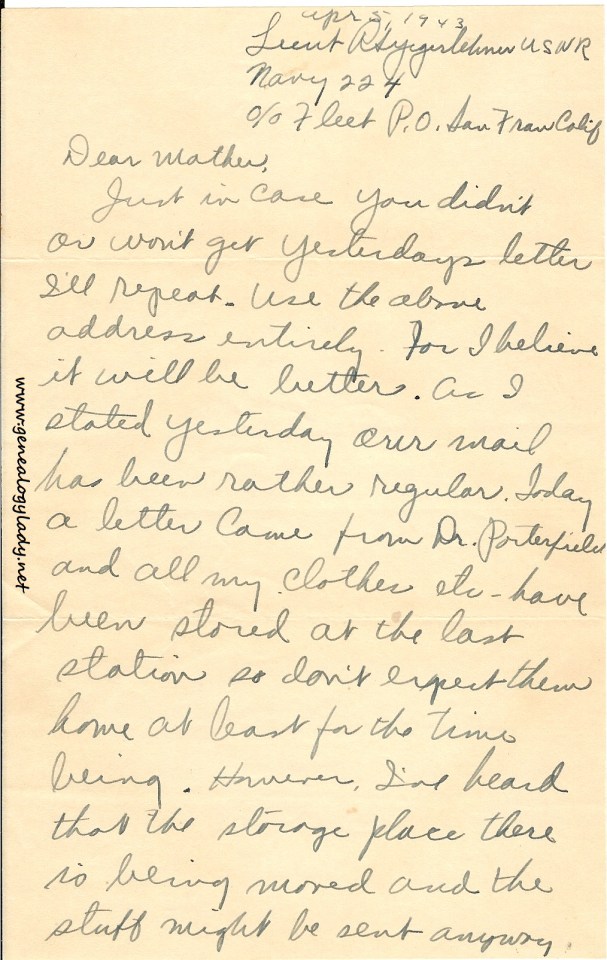 Apr 5, 1943
Lieut R S Yegerlehner USNR
Navy 224
c/o Fleet P.O. San Fran Calif
Dear Mother,
Just in case you didn't
or won't get yesterdays letter
I'll repeat. Use the above
address entirely. For I believe
it will be better. As I
stated yesterday our mail
has been rather regular. Today
a letter came from Dr. Porterfield
and all my clothes etc - have
been stored at the last
station so don't expect them
home at least for the time
being. However, I've heard
that the storage place there
is being moved and the
stuff might be sent anyway.
www.genealogylady.net